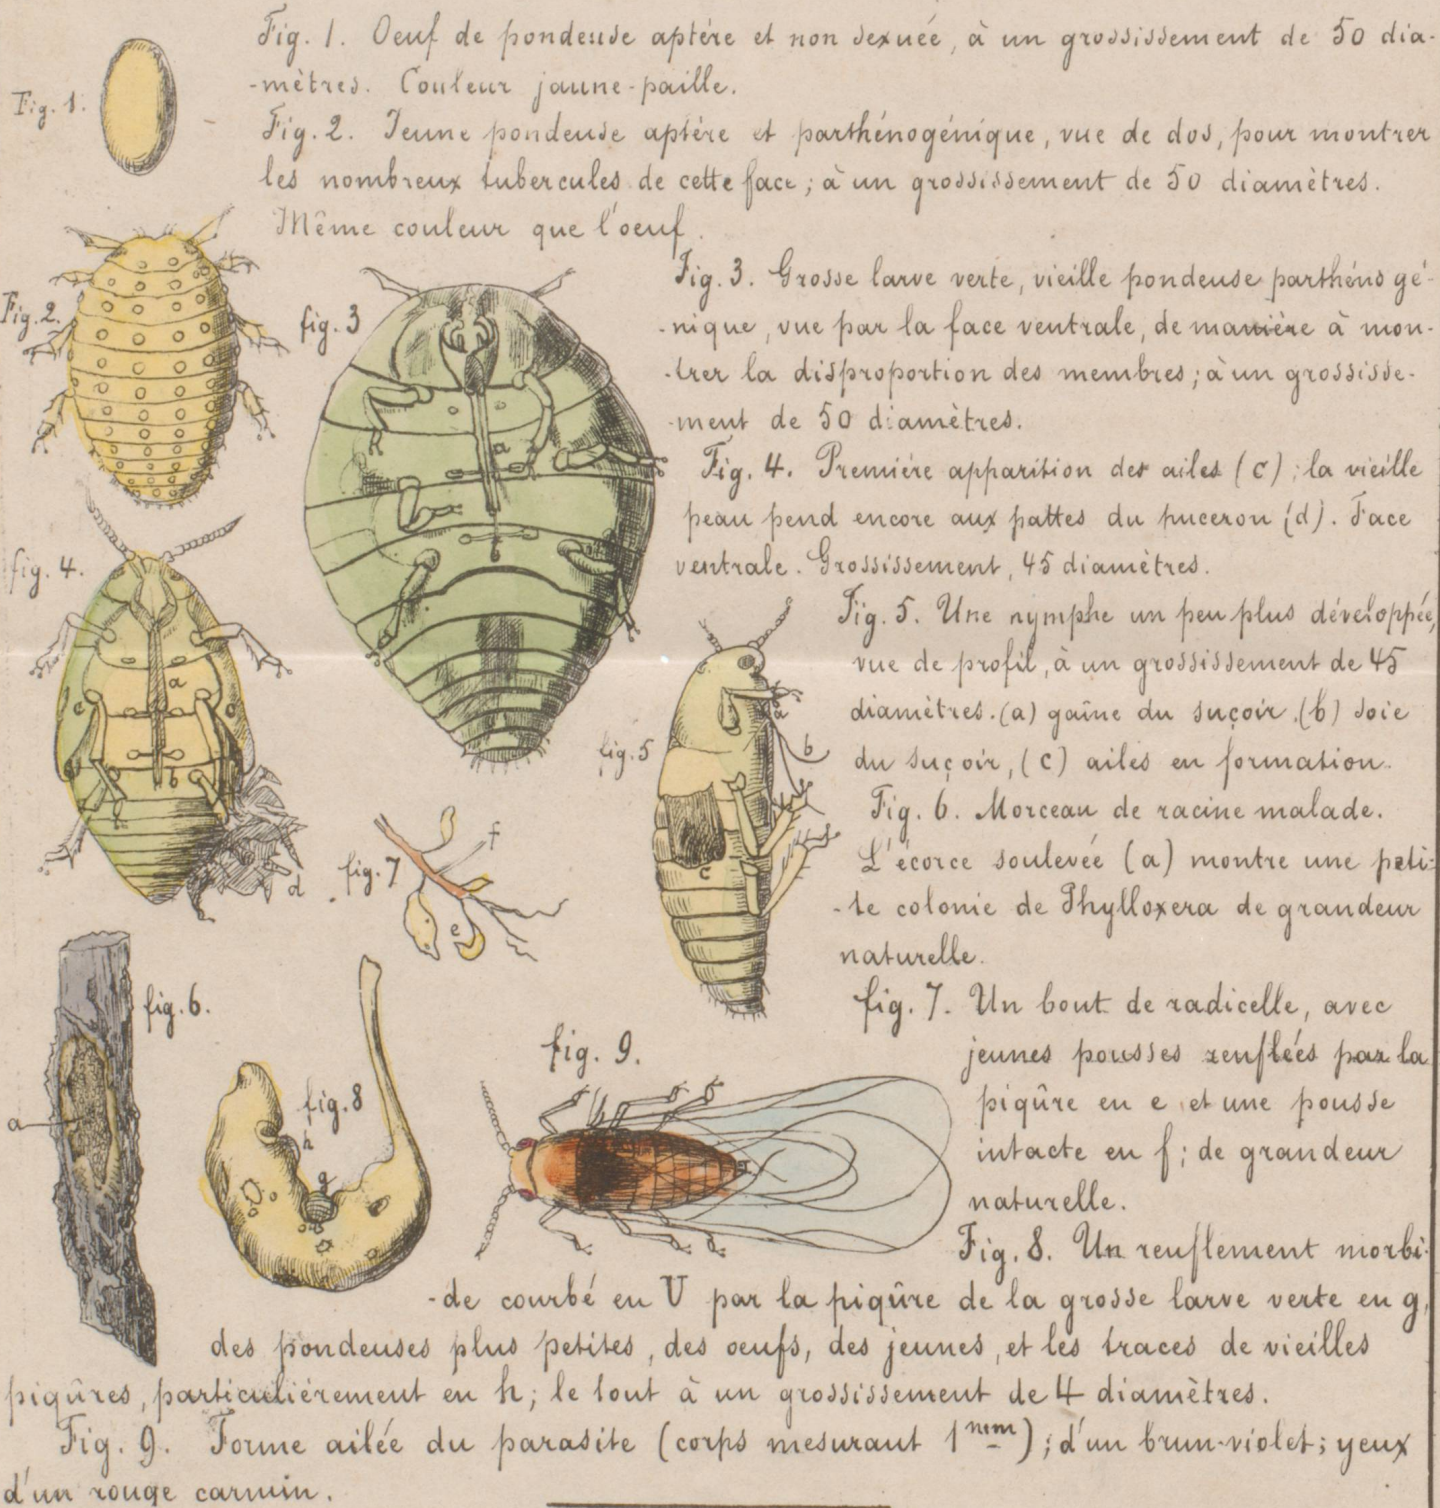 Fig. 1. Oeuf de pondeuse aptére et non sexuée, à un grossissement de 50 dia-
-mètres. Couleur jaune-paille.
Fig. 1.
Fig. 2. Jeune pondeuse aptére et parthénogénique, vue de dos, pour montrer
les nombreux tubercules de cette face; à un grossissement de 50 diamètres.
Même couleur que l'oeuf.
Fig. 2.
fig. 3
Fig. 3. Grosse larve verte, vieille pondeuse parthénogé-
-nique, vue par la face ventrale, de manière à mon-
-trer la disproportion des membres; à un grossisse-
-ment de 50 diamètres.
a
b
Fig. 4. Premiére apparition des ailes (c); la vieille
peau pend encore aux pattes du puceron (d). Face
ventrale. Grossissement, 45 diamètres.
fig. 4.
a
c
b
d
Fig. 5. Une nymphe un peu plus développée,
vue de profil, à un grossissement de 45
diamètres. (a) gaîne du suçoir, (b) soie
du suçoir, (c) ailes en formation.
fig. 5
a
b
c
Fig. 6. Morceau de racine malade.
L'écorce soulevée (a) montre une peti-
-te colonie de Phylloxera de grandeur
naturelle.
fig. 7
f
e
fig. 6.
a
fig. 7. Un bout de radicelle, avec
jeunes pousses renflées par la
piqûre en e et une pousse
intacte en f; de grandeur
naturelle.
fig. 8
h
g
fig. 9.
Fig. 8. Un renflement morbi-
-de courbé en U par la piqûre de la grosse larve verte en g,
des pondeuses plus petites, des oeufs, des jeunes, et les traces de vieilles
piqûres, particuliérement en h; le tout à un grossissement de 4 diamètres.
Fig. 9. Forme ailée du parasite (corps mesurant 1 mm); d'un brun-violet; yeux
d'un rouge carmin.